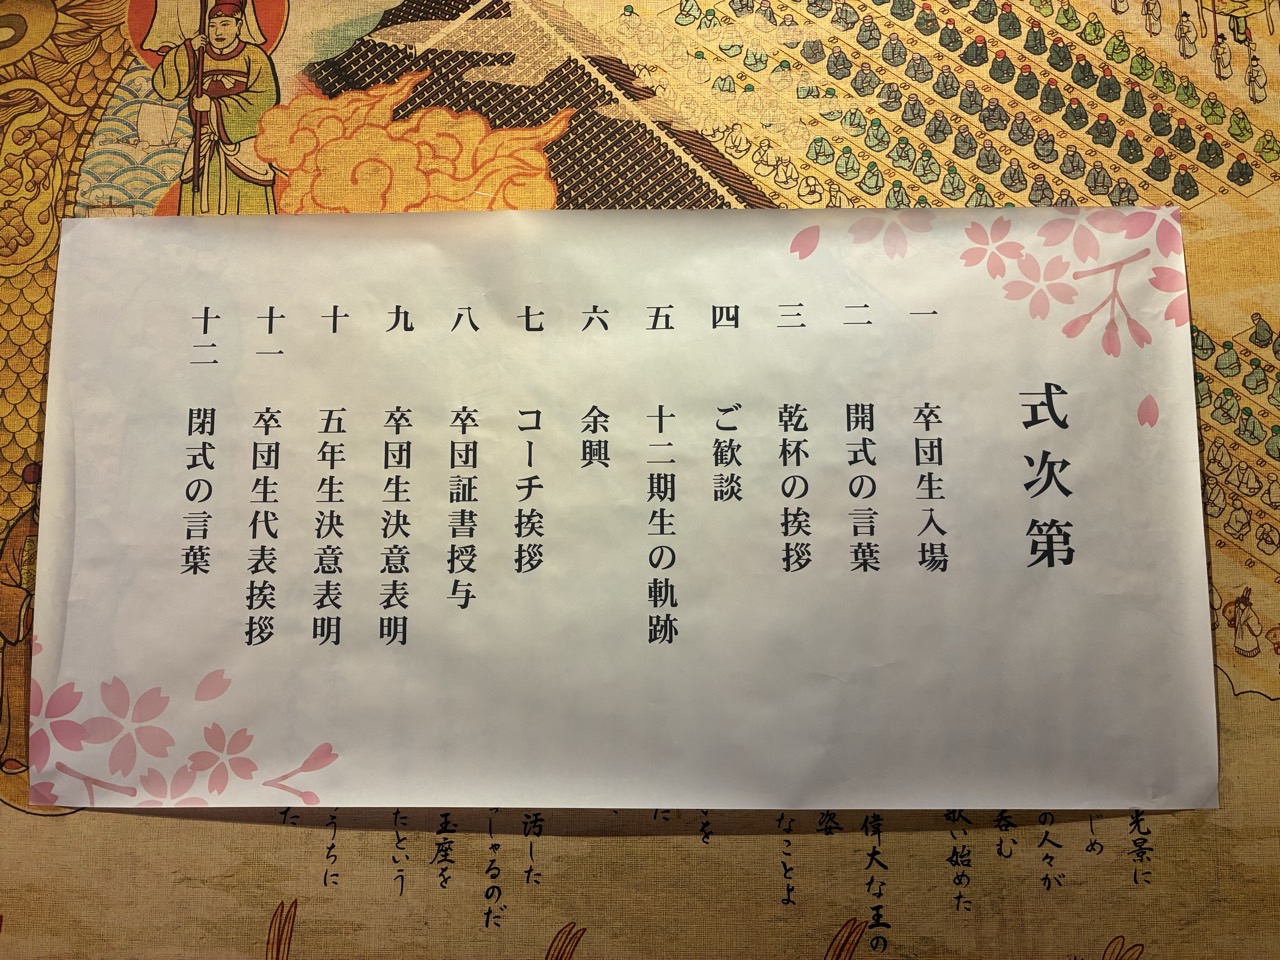 式次第
一 卒団生入場
二 開式の言葉
三 乾杯の挨拶
四 ご歓談
五 十二期生の軌跡
六 余興
七 コーチ挨拶
八 卒団証書授与
九 卒団生決意表明
十 五年生決意表明
十一 卒団生代表挨拶
十二 閉式の言葉
光景に
じめ
の人々が
呑む
歌い始めた
偉大な王の
姿
なことよ
を
た
汚した
しゃるのだ
玉座を
たという
うちに
た